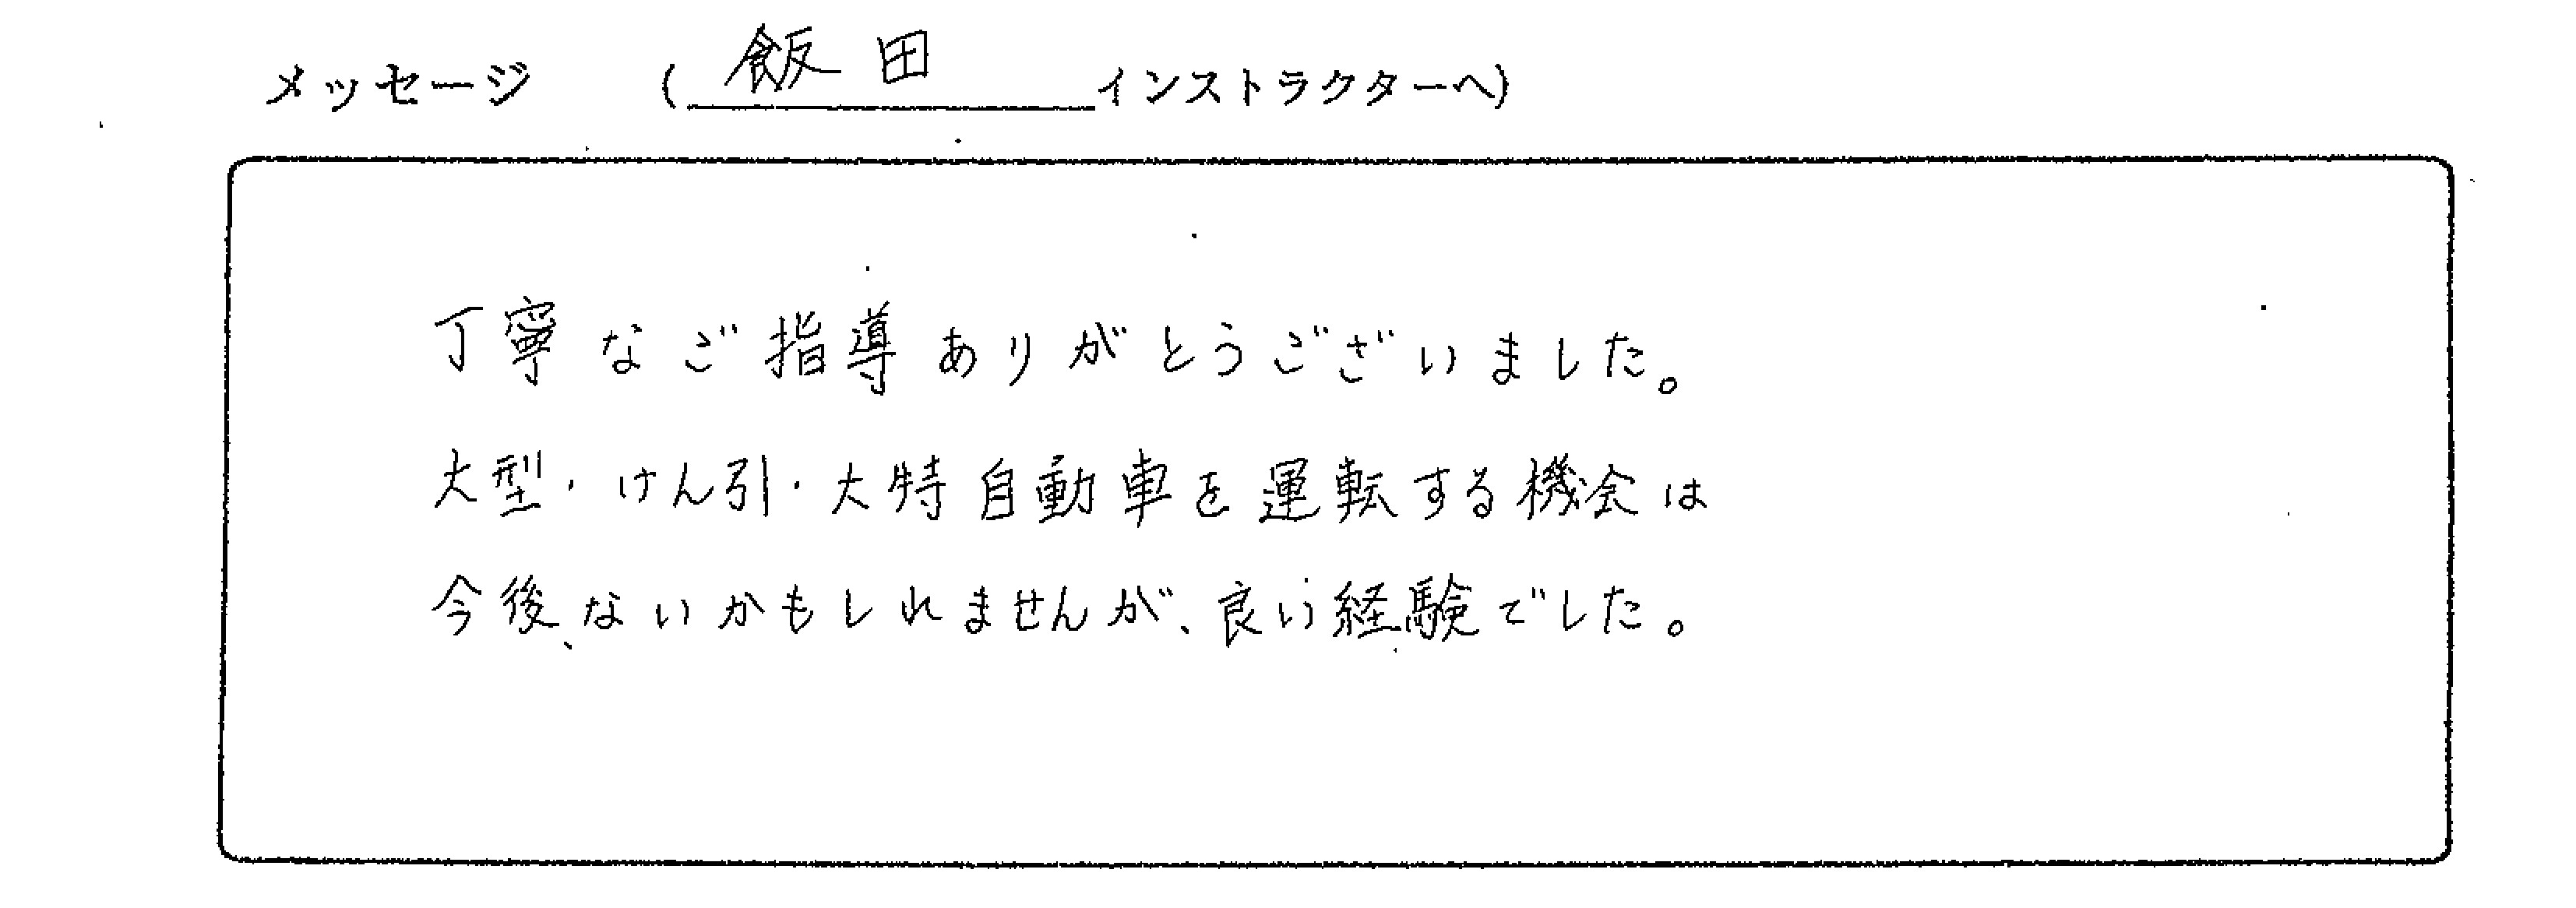 メッセージ (飯田インストラクターへ)
丁寧なご指導ありがとうございました。
大型・けん引・大特自動車を運転する機会は
今後、ないかもしれませんが、良い経験でした。